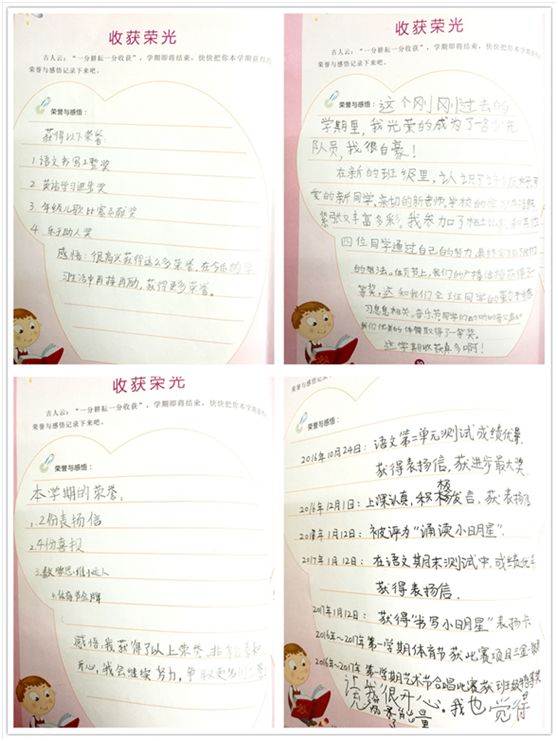 收获荣光
古人云：“一分耕耘一分收获”，学期即将结束，快快把你本学期获得的
荣誉与感悟记录下来吧。
荣誉与感悟：
获得以下荣誉：
1.语文书写工整奖
2.英语学习进步奖
3.年级儿歌比赛
4.乐于助人奖
感悟：很高兴获得这么多荣誉，在今后的学
习生活中再接再励，获得更多荣誉。
收获荣光
古人云：“一分耕耘一分收获”，学期即将结束，快快把你本学期
荣誉与感悟记录下来吧。
荣誉与感悟：
这个刚刚过去的
学期里，我光荣的成为了一名少先
队员，我很自豪！
在新的班级里，认识了许多
爱的新同学，亲切的新老师，学校的学习生活既
紧张又丰富多彩，我参加了
四位同学通过自己的努力，最终
的想法。体育节上，我们的广播体操获得了
等奖，这和我们全班同学的
习息息相关。音乐节同学们
取得了一等奖。
这学期收获真多啊！
收获荣光
古人云：“一分耕耘一分收获”，学期即将结束，快快把你本学期
荣誉与感悟记录下来吧。
荣誉与感悟：
本学期的荣誉，
1.2份表扬信
2.4份喜报
3.数学思维小达人
4.体育节金牌
感悟：我获得了以上荣誉，非常
开心，我会继续努力，争取更多的
荣誉与感悟：
2016年10月24日：语文第二单元测试成绩优异，
获得表扬信，获进步最大奖。
2016年12月1日：上课认真，积极发言，获表扬
1月12日：被评为“诵读小明星”。
2017年1月12日：在语文期末测试中，成绩优异
获得表扬信。
2017年1月12日：获得“书写小明星”表扬卡
2016年~2017年第一学期体育节获比赛项目
2016年~2017年第一学期艺术节合唱比赛获班级特等奖
我很开心。我也觉得